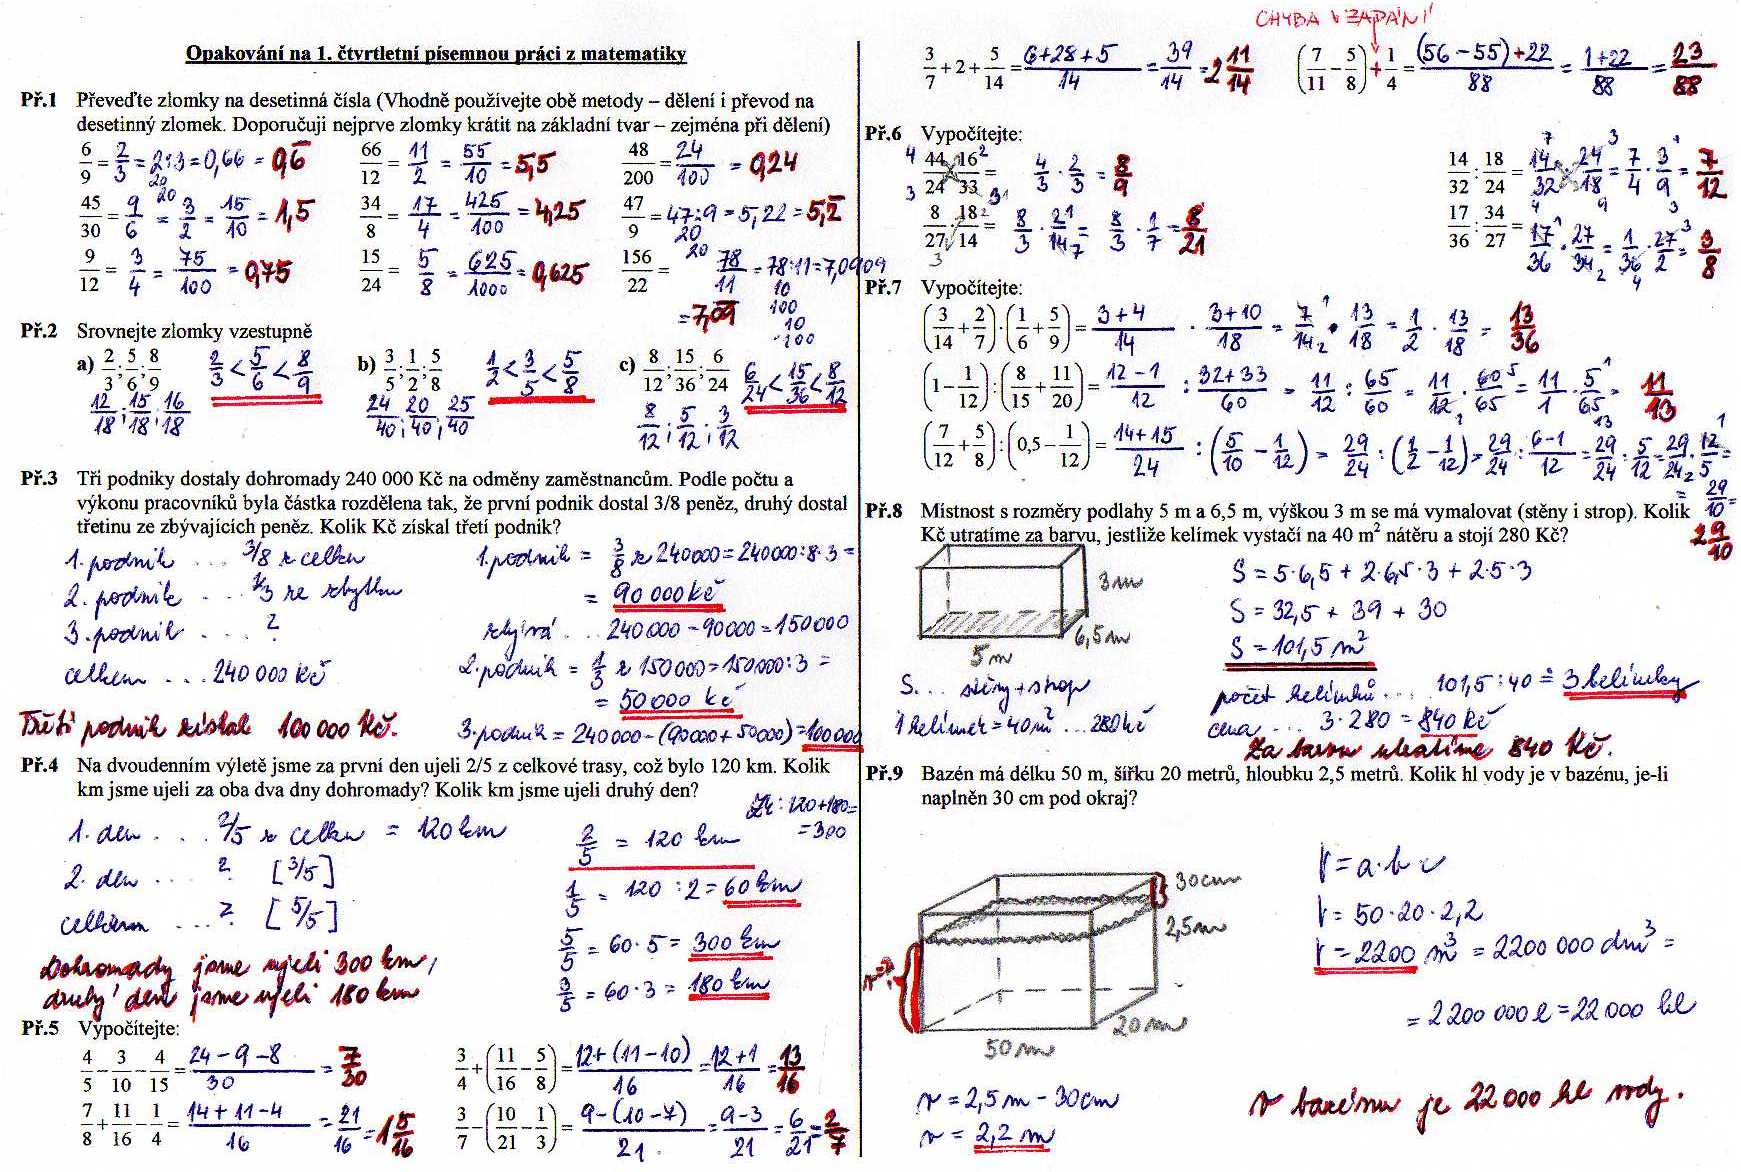 Opakování na 1. čtvrtletní písemnou práci z matematiky
Př.1 Převeďte zlomky na desetinná čísla (Vhodně používejte obě metody – dělení i převod na
desetinný zlomek. Doporučuji nejprve zlomky krátit na základní tvar – zejména při dělení)
6/9 = 2/3 = 2:3 = 0,66 = 0,6̅ 66/12 = 11/2 = 55/10 = 5,5 48/200 = 24/100 = 0,24
20
45/30 = 9/6 = 3/2 = 15/10 = 1,5 34/8 = 17/4 = 425/100 = 4,25 47/9 = 47:9 = 5,22 = 5,2̅
20
20
9/12 = 3/4 = 75/100 = 0,75 15/24 = 5/8 = 625/1000 = 0,625 156/22 = 78/11 = 78:11 = 7,0909
10
100
= 7,0̅9̅
10
100
Př.2 Srovnejte zlomky vzestupně
a) 2/3; 5/6; 8/9 2/3 < 5/6 < 8/9 b) 3/5; 1/2; 5/8 1/2 < 3/5 < 5/8 c) 8/12; 15/36; 6/24 6/24 < 15/36 < 8/12
12/18; 15/18; 16/18 24/40; 20/40; 25/40 8/12; 5/12; 3/12
Př.3 Tři podniky dostaly dohromady 240 000 Kč na odměny zaměstnancům. Podle počtu a
výkonu pracovníků byla částka rozdělena tak, že první podnik dostal 3/8 peněz, druhý dostal
třetinu ze zbývajících peněz. Kolik Kč získal třetí podnik?
1. podnik ... 3/8 z celku 1. podnik = 3/8 z 240000 = 240000:8·3 =
2. podnik ... 1/3 ze zbytku = 90 000 Kč
3. podnik .... ? zbývá ... 240 000 - 90000 = 150000
celkem ... 240 000 Kč 2. podnik = 1/3 z 150 000 = 150000:3 =
= 50 000 Kč
Třetí podnik získal 100 000 Kč. 3. podnik = 240000-(90000+50000)=100000
Př.4 Na dvoudenním výletě jsme za první den ujeli 2/5 z celkové trasy, což bylo 120 km. Kolik
km jsme ujeli za oba dva dny dohromady? Kolik km jsme ujeli druhý den?
Zk: 120+180=
=300
1. den ... 2/5 z celku = 120 km 2/5 = 120 km
2. den .... ? [3/5] 1/5 = 120 : 2 = 60 km
celkem ...? [5/5] 5/5 = 60·5 = 300 km
Dohromady jsme ujeli 300 km,
druhý den jsme ujeli 180 km 3/5 = 60·3 = 180 km
Př.5 Vypočítejte:
4/5 - 3/10 - 4/15 = (24-9-8)/30 = 7/30 3/4 + (11/16 - 5/8) = (12+(11-10))/16 = (12+1)/16 = 13/16
7/8 + 11/16 - 1/4 = (14+11-4)/16 = 21/16 = 1 5/16 3/7 - (10/21 - 1/3) = (9-(10-7))/21 = (9-3)/21 = 6/21 = 2/7
CHYBA V ZADÁNÍ
3/7 + 2 + 5/14 = (6+28+5)/14 = 39/14 = 2 11/14 (7/11 - 5/8) + 1/4 = ((56-55)+22)/88 = (1+22)/88 = 23/88
Př.6 Vypočítejte:
44/24 · 16/33 = 4/3 · 2/3 = 8/9 14/32 : 18/24 = 14/32 · 24/18 = 7/4 · 3/9 = 7/12
8/27 · 18/14 = 8/3 · 2/14 = 8/3 · 1/7 = 8/21 17/36 : 34/27 = 17/36 · 27/34 = 1/36 · 27/2 = 3/8
Př.7 Vypočítejte:
(3/14 + 2/7)·(1/6 + 5/9) = (3+4)/14 · (3+10)/18 = 7/14 · 13/18 = 1/2 · 13/18 = 13/36
(1 - 1/12):(8/15 + 11/20) = (12-1)/12 : (32+33)/60 = 11/12 : 65/60 = 11/12 · 60/65 = 11/1 · 5/65 = 11/13
(7/12 + 5/8):(0,5 - 1/12) = (14+15)/24 : (5/10 - 1/12) = 29/24 : (1/2 - 1/12) = 29/24 : (6-1)/12 = 29/24 : 5/12 = 29/24 · 12/5 =
= 29/10 =
2 9/10
Př.8 Místnost s rozměry podlahy 5 m a 6,5 m, výškou 3 m se má vymalovat (stěny i strop). Kolik
Kč utratíme za barvu, jestliže kelímek vystačí na 40 m² nátěru a stojí 280 Kč?
3m
6,5m
5m
S = 5·6,5 + 2·6,5·3 + 2·5·3
S = 32,5 + 39 + 30
S = 101,5 m²
S... stěny + strop
1 kelímek = 40m² ... 280 Kč
počet kelímků ... 101,5 : 40 ≐ 3 kelímky
cena ... 3·280 = 840 Kč
Za barvu utratíme 840 Kč.
Př.9 Bazén má délku 50 m, šířku 20 metrů, hloubku 2,5 metrů. Kolik hl vody je v bazénu, je-li
naplněn 30 cm pod okraj?
30cm
2,5m
v=?
20m
50m
V = a·b·v
V = 50·20·2,2
V = 2200 m³ = 2200 000 dm³ =
= 2200 000 l = 22 000 hl
v = 2,5m - 30cm
v = 2,2 m
V bazénu je 22 000 hl vody.